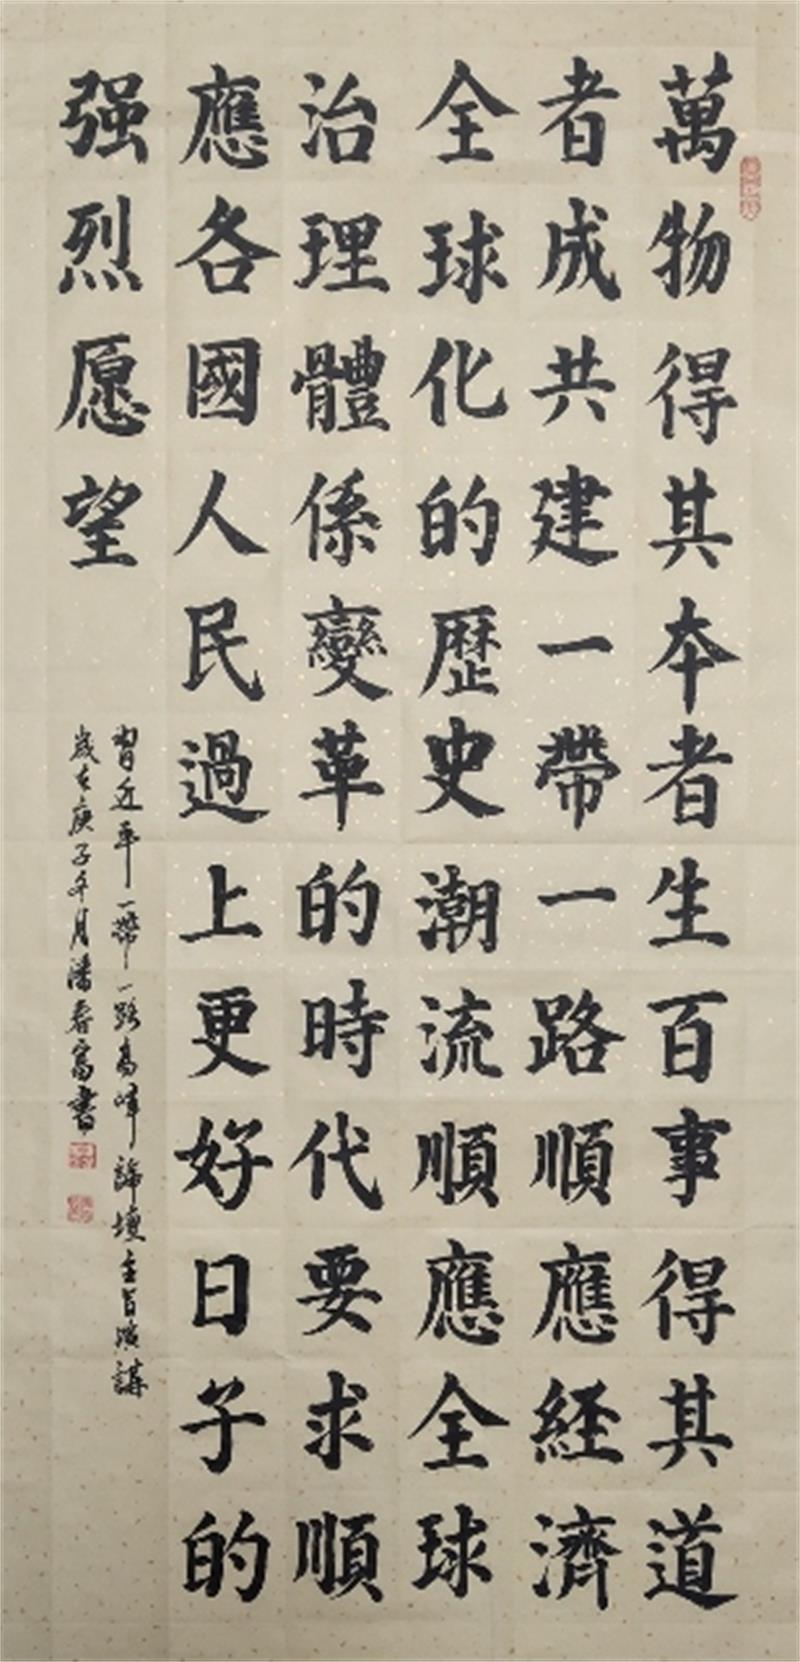 萬物得其本者生百事得其道
者成共建一帶一路順應経濟
全球化的歷史潮流順應全球
治理體係變革的時代要求順
應各國人民過上更好日子的
强烈愿望
習近平一帶一路高峰論壇主旨演講
歲在庚子年月潘春富書